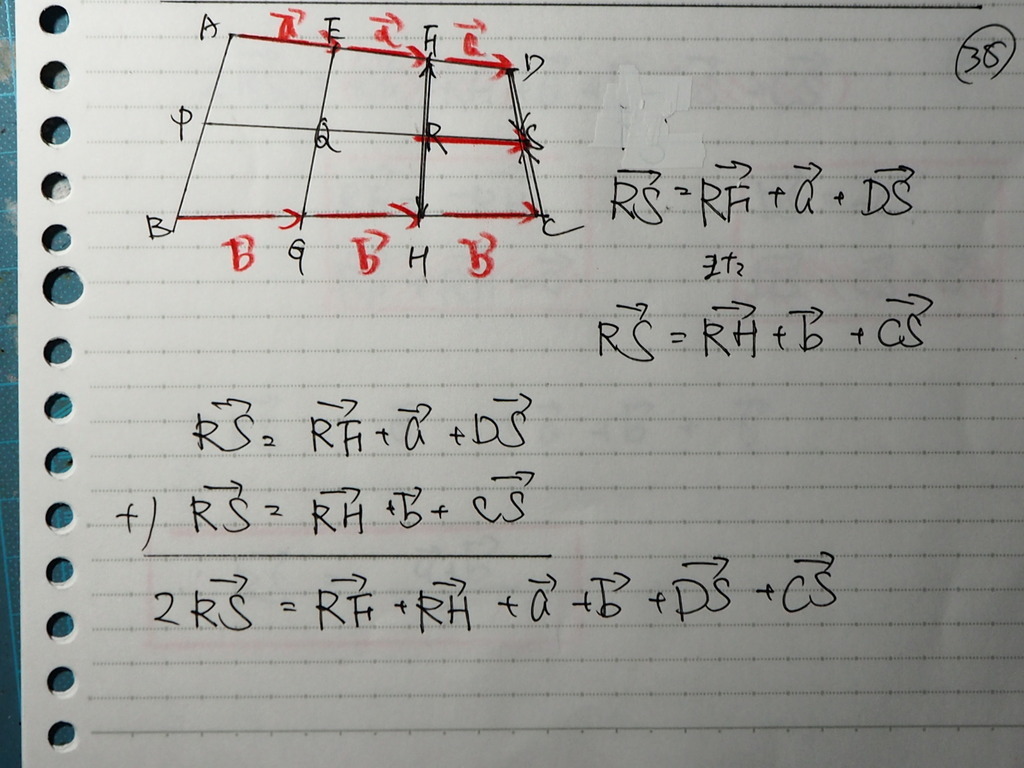 38
A a⃗ E a⃗ F a⃗ D
P Q R S
B G H C
b⃗ b⃗ b⃗
RS⃗ = RF⃗ + a⃗ + DS⃗
また
RS⃗ = RH⃗ + b⃗ + CS⃗
RS⃗ = RF⃗ + a⃗ + DS⃗
+) RS⃗ = RH⃗ + b⃗ + CS⃗
2RS⃗ = RF⃗ + RH⃗ + a⃗ + b⃗ + DS⃗ + CS⃗